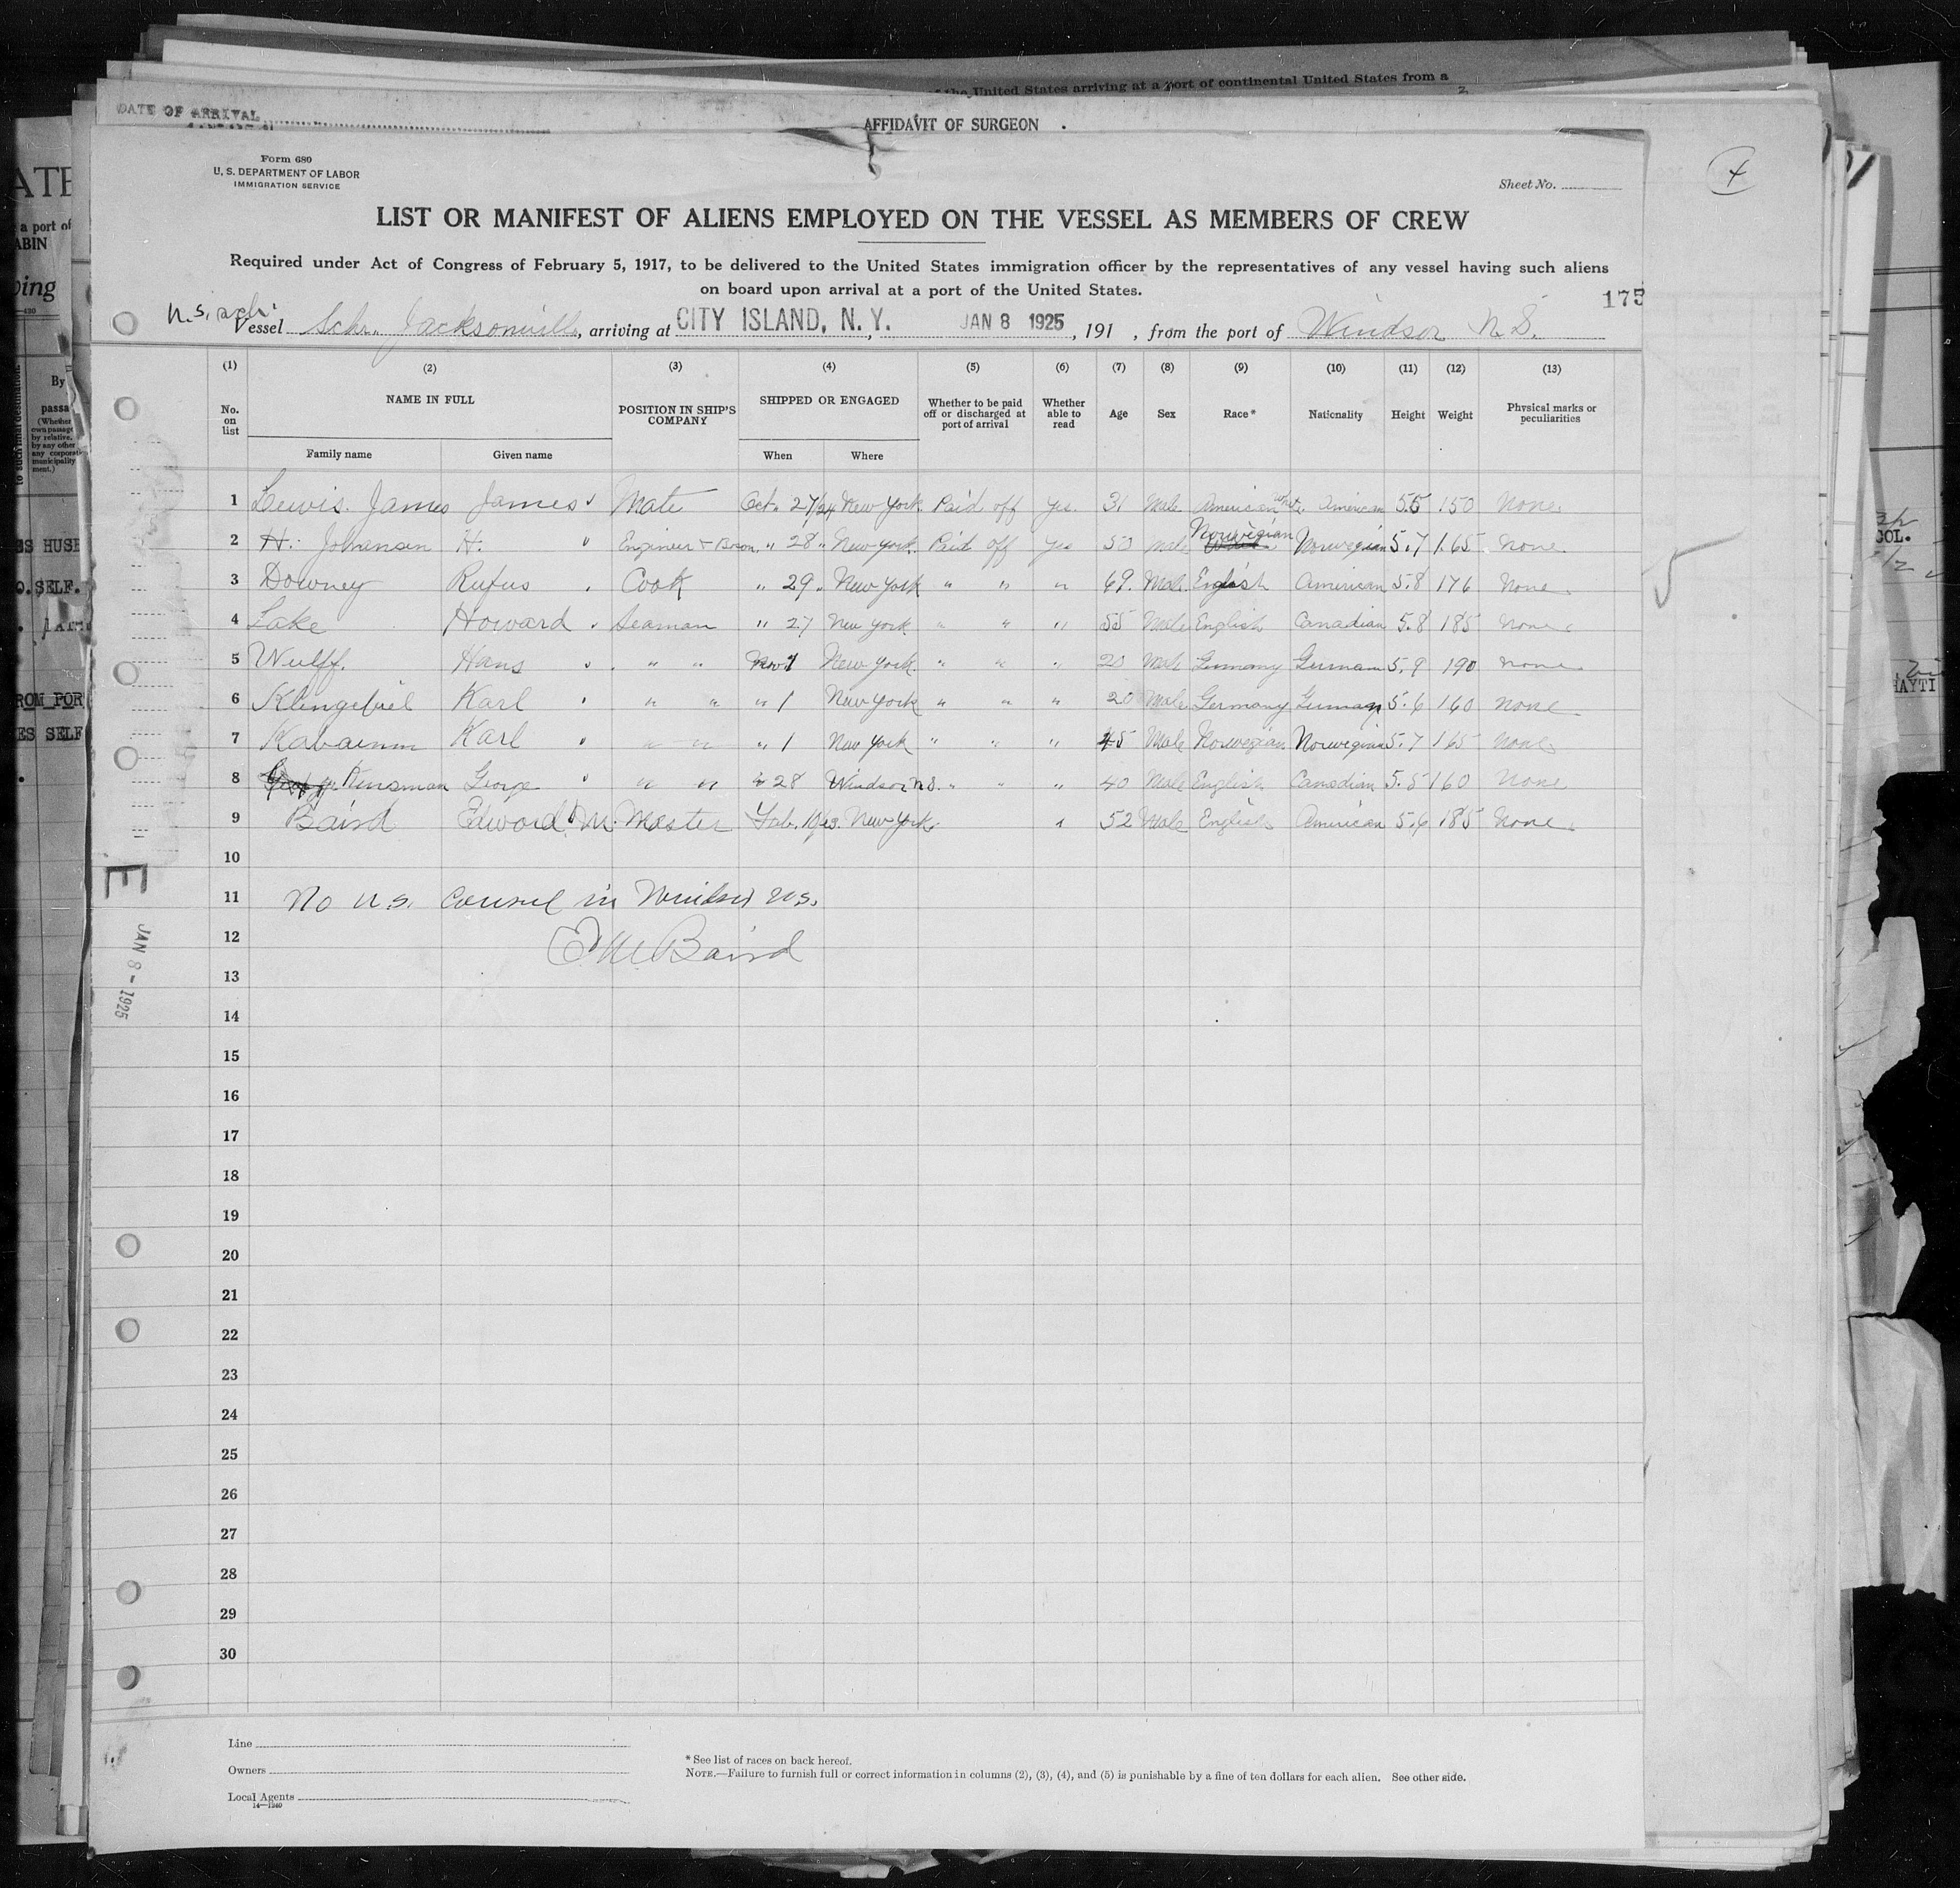 the United States arriving at a port of continental United States from a
2
DATE OF ARRIVAL
AFFIDAVIT OF SURGEON
Form 680
U. S. DEPARTMENT OF LABOR
IMMIGRATION SERVICE
Sheet No.
LIST OR MANIFEST OF ALIENS EMPLOYED ON THE VESSEL AS MEMBERS OF CREW
Required under Act of Congress of February 5, 1917, to be delivered to the United States immigration officer by the representatives of any vessel having such aliens
on board upon arrival at a port of the United States.
175
Vessel Schr. Jacksonville, arriving at CITY ISLAND, N. Y., JAN 8 1925, 191 , from the port of Windsor N.S.
(1) (2) (3) (4) (5) (6) (7) (8) (9) (10) (11) (12) (13)
No. on list NAME IN FULL POSITION IN SHIP'S COMPANY SHIPPED OR ENGAGED Whether to be paid off or discharged at port of arrival Whether able to read Age Sex Race* Nationality Height Weight Physical marks or peculiarities
Family name Given name When Where
1 Lewis. James James Mate Oct. 27/24 New York Paid off yes. 31 Male American White American 5.5 150 None
2 H. Johansen H. Engineer + Bosn. " 28 " New York. Paid off yes 50 Male Norwegian Norwegian 5.7 165 None.
3 Downey Rufus Cook " 29 " New York " " " 69. Male English American 5.8 176 None
4 Lake Howard Seaman " 27 New York " " " 55 Male English Canadian 5.8 185 None
5 Wulff. Hans " " Nov 1 New York. " " " 20 Male Germany German 5.9 190 none
6 Klingebiel Karl " " " 1 New York " " " 20 Male Germany German 5.6 160 none
7 Karl " " " 1 New York " " " 45 Male Norwegian Norwegian 5.7 165 None
8 Kinsman George " " " 28 Windsor N.S. " " " 40 Male English Canadian 5.5 160 None
9 Baird Edward M. Master Feb. 10/23. New York. " 52 Male English American 5.6 185 None
10
11 No U.S. Counsel in Windsor N.S.
12 E M Baird
13
14
15
16
17
18
19
20
21
22
23
24
25
26
27
28
29
30
E
JAN 8 - 1925
Line
Owners
Local Agents
14—1240
* See list of races on back hereof.
NOTE.—Failure to furnish full or correct information in columns (2), (3), (4), and (5) is punishable by a fine of ten dollars for each alien. See other side.